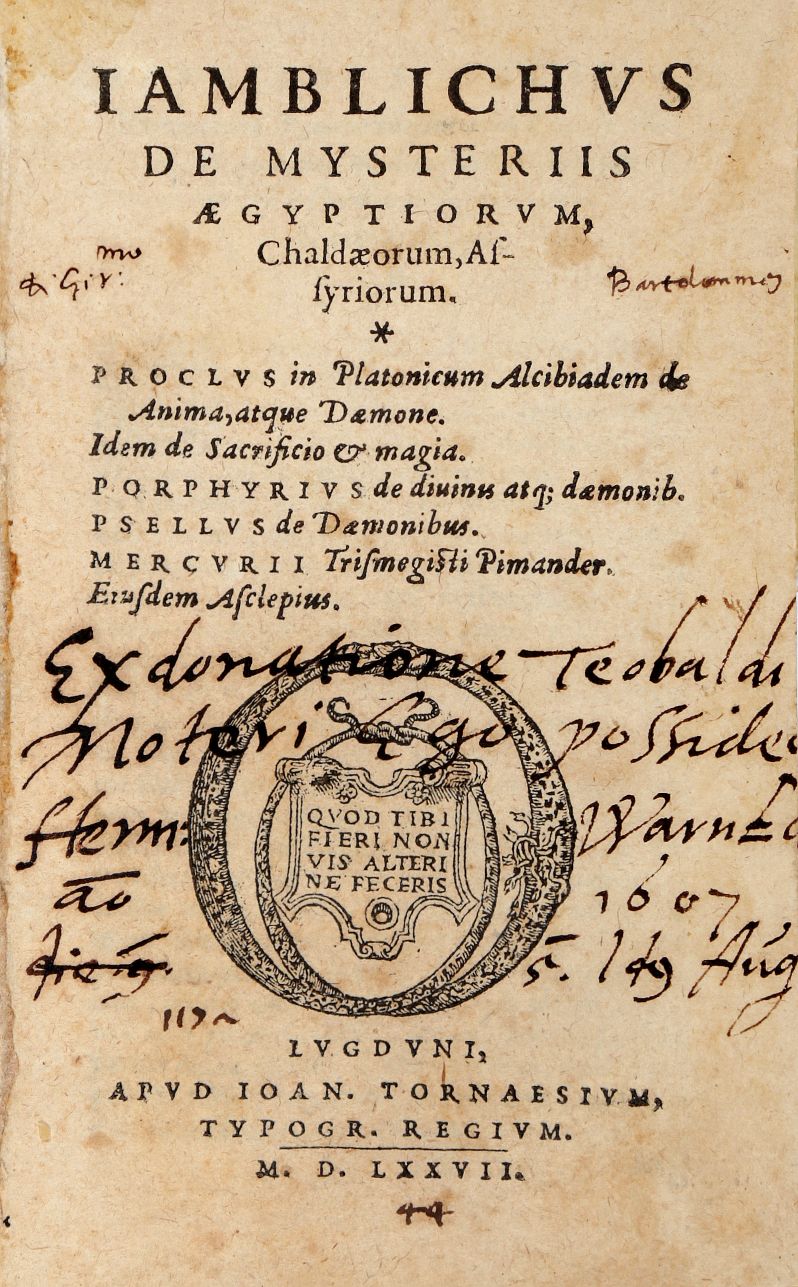 IAMBLICHVS
DE MYSTERIIS
ÆGYPTIORVM,
Chaldæorum, Aſ-
ſyriorum.
*
Bartolommej
PROCLVS in Platonicum Alcibiadem de
Anima, atque Dæmone.
Idem de Sacrificio & magia.
PORPHYRIVS de diuinis atq; dæmonib.
PSELLVS de Dæmonibus.
MERCVRII Triſmegiſti Pimander.
Eiuſdem Aſclepius.
Ex donatione Teobaldi
Moteri Ego possideo
Herm: Warnec
ão 1607
5. Aug
QVOD TIBI
FIERI NON
VIS ALTERI
NE FECERIS
LVGDVNI,
APVD IOAN. TORNAESIVM,
TYPOGR. REGIVM.
M. D. LXXVII.
44